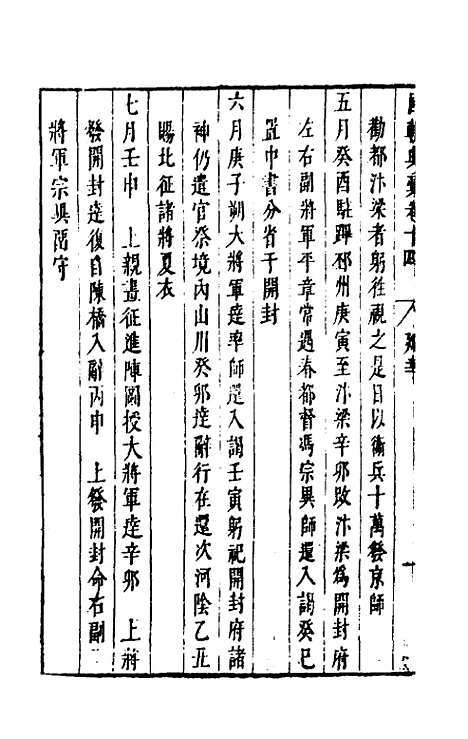 國朝典彙卷十四 巡幸
勸都汴梁者躬往視之是日以衛兵十萬發京師
五月癸酉駐蹕邳州庚寅至汴梁辛卯改汴梁為開封府
左右副將軍平章常遇春都督馮宗異師還入謁癸巳
置中書分省于開封
六月庚子朔大將軍達率師還入謁壬寅躬祀開封府諸
神仍遣官祭境內山川癸卯達辭行在還次河陰乙丑
賜北征諸將夏衣
七月壬申 上親畫征進陣圖授大將軍達辛卯 上將
發開封達復自陳橋入辭丙申 上發開封命右副
將軍宗異留守